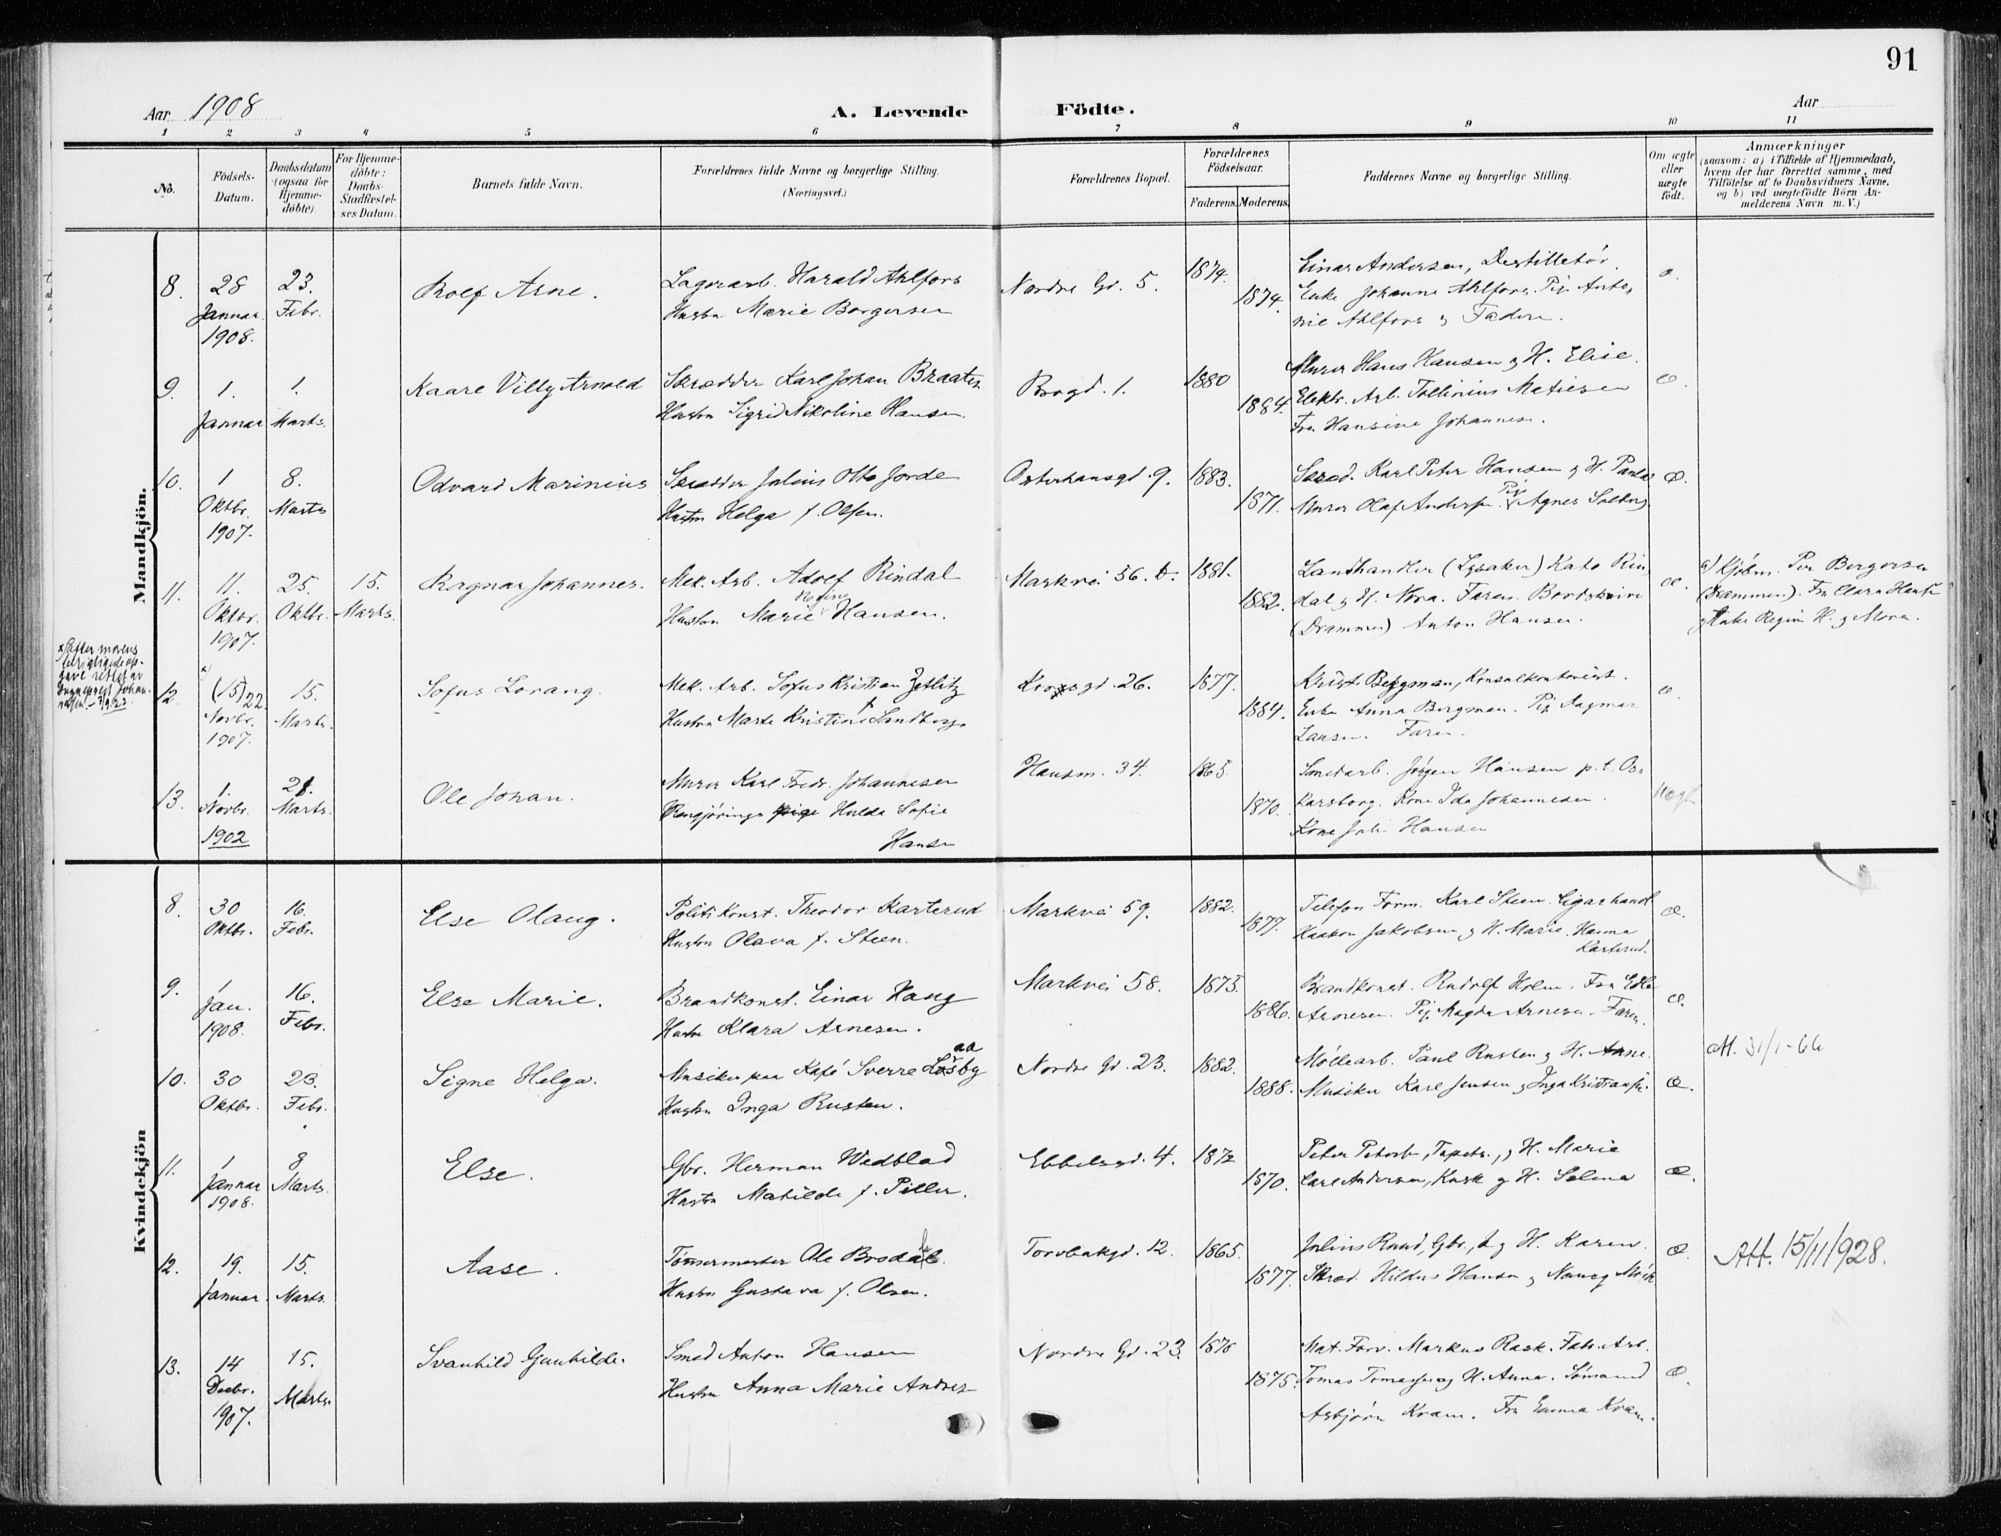 91
Aar 1908
A. Levende Födte.
Aar
1 2 3 4 5 6 7 8 9 10 11
No.
Födsels-
Datum.
Daabsdatum
(ogsaa for
Hjemme-
döbte).
For Hjemme-
döbte:
Daabs-
Stadfæstel-
ses Datum.
Barnets fulde Navn.
Forældrenes fulde Navne og borgerlige Stilling.
(Næringsvei.)
Forældrenes Bopæl.
Forældrenes
Födselsaar.
Faderens. Moderens.
Faddernes Navne og borgerlige Stilling.
Om ægte
eller
uægte
födt.
Anmærkninger
(saasom: a) i Tilfælde af Hjemmedaab,
hvem der har forrettet samme, med
Tilföielse af to Daabsvidners Navne,
og b) ved uægtefödte Börn An-
melderens Navn m. V.)
Mandkjön.
8. 28 Januar 1908. 23. Febr.
Rolf Arne.
Lagerarb. Harald Ahlfors
Hustru Marie Borgersen
Nordre Gd. 5. 1874. 1874.
Einar Andersen, Destilletør.
Enke Johanne Ahlfors, Pig. Anto-
nie Ahlfors & Faderen.
9. 1. Januar 1. Marts.
Kaare Villy Arnold
Skrædder Karl Johan Braaten
Hustru Sigrid Nikoline Hansen.
Brogd. 1. 1880 1884.
Murer Hans Hansen & H. Elise.
Elektr. Arb. Tollinius Matiesen
Fru Hansine Johannesen.
æ.
10. 1 Oktbr. 1907. 8. Marts
Odvard Marinius
Skrædder Julius Otto Jorde
Hustru Helga f. Olsen.
Osterhausgd. 9. 1883. 1871.
Skræd. Karl Peter Hansen & H. Paula
Murer Olaf Andersen. Pig. Agnes Solberg.
æ.
11. 11. Oktbr. 1907. 25. Oktbr. 15. Marts.
Ragnar Johannes.
Mek. Arb. Adolf Rindal
Hustru Marie Hansen.
Markvei 56. b. 1881. 1882.
Landhandler (Lysaker) Kato Rin-
dal & H. Nora. Faren.
(Drammen) Anton Hansen.
æ.
a) Hjdbn. Per Borgersen
(Drammen). Fru Clara Hansen
12. (15) 22 Novbr. 1907. 15. Marts.
Sofus Lorang.
Mek. Arb. Sofus Kristian Zetlitz
Hustru Marta Kristine Sandberg
Krogsgd. 26. 1877. 1884.
Krist. Bergman, Konsulkontorist.
Enke Anna Bergman. Pig. Dagmar
Larsen. Faren.
13. 1. Novbr. 1902 28. Marts.
Ole Johan.
Murer Karl Fredr. Johannesen
Rengjørings pige Hulda Sofie
Hansen
Hausm. 34. 1865. 1870.
Smedarb. Jørgen Hansen p. t. Os-
karsborg. Kone Ida Johannesen.
Kone Juli Hansen
Uægte
Kvindekjön
8. 30 Oktbr. 16. Febr.
Else Olaug.
Politi Konst. Theodor Karterud
Hustru Olava f. Steen.
Markvei 59. 1882. 1877.
Telefon Form. Karl Steen. Cigarhandl.
Haakon Jakobsen & H. Marie. Hanna
Karterud.
æ.
9. 1 Jan. 1908. 16. Febr.
Else Marie.
Brandkonst. Einar Haug
Hustru Klara Arnesen.
Markvei 58. 1875. 1886.
Brandkonst. Rudolf Holm. Fru Edle
Arnesen. Pig. Magda Arnesen. Faren.
æ.
10. 30 Oktbr. 23. Febr.
Signe Helga.
Musiker paa Kafé Sverre Losby
aa
Hustru Inga Rusten.
Nordre Gd. 23. 1882. 1888.
Møllearb. Paul Rusten & H. Anne.
Musiker Karl Jensen & Inga Kristiansen.
æ.
Att. 31/1-66
11. 1 Januar 1908. 8 Marts.
Else.
Gbr. Herman Wedblad
Hustru Matilde f. Piller.
Ebbelsgd. 4. 1872 1870.
Peter Petersen, Tapets., & H. Marie
Carl Andersen, Kusk & H. Selma
æ.
12. 19. Januar. 15. Marts.
Aase.
Tømmermester Ole Brodal.
Hustru Gustava f. Olsen.
Torvbakgd. 12. 1865. 1877.
Julius Ruud, Gbr., & H. Karen.
Skræd. Hildus Hansen & Nancy Mörk
æ.
Att. 15/11/928.
13. 14 Decbr. 1907. 15. Marts.
Svanhild Gunhilde.
Smed Anton Hansen
Hustru Anna Marie Andres
Nordre Gd. 23. 1876 1875.
Mat. Forv. Markus Rask. Fabr. Arb.
Tomas Tomassen & H. Anna. Sømand
Asbjørn Kram. Fru Emma Kram.
æ.